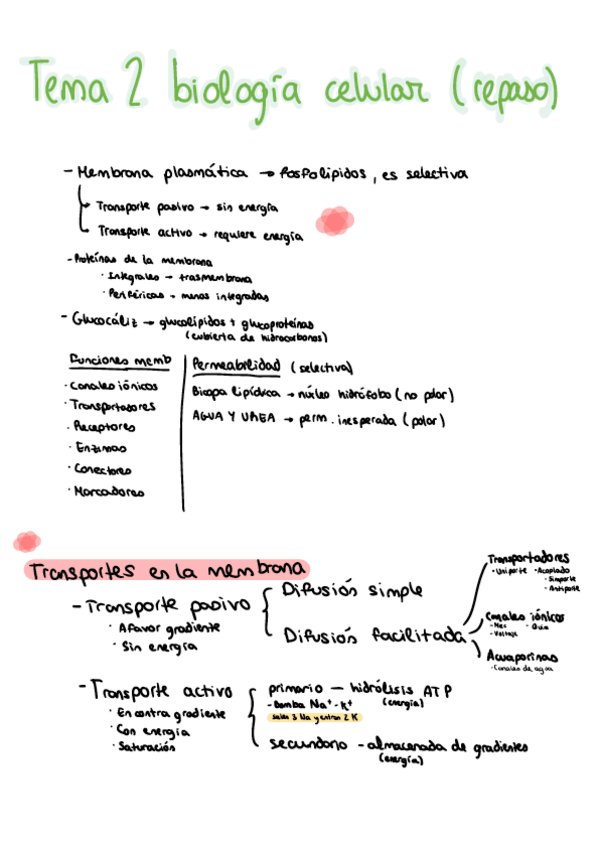 Tema 2 biología celular (repaso)
- Membrana plasmática → fosfolípidos, es selectiva
Transporte pasivo → sin energía
Transporte activo → requiere energía
- Proteínas de la membrana
· Integrales → trasmembrana
· Periféricas → menos integradas
- Glucocáliz → glucolípidos + glucoproteínas
(cubierta de hidrocarbonos)
Funciones memb
· Canales iónicos
· Transportadores
· Receptores
· Enzimas
· Conectores
· Marcadores
Permeabilidad (selectiva)
Bicapa lipídica → núcleo hidrófobo (no polar)
AGUA Y UREA → perm. inesperada (polar)
Transportes en la membrana
- Transporte pasivo
· A favor gradiente
· Sin energía
Difusión simple
Difusión facilitada
Transportadores
· Uniporte · Acoplado
· Simporte
· Antiporte
Canales iónicos
· Mec · Quim
· Voltaje
Acuaporinas
· Canales de agua
- Transporte activo
· En contra gradiente
· Con energía
· Saturación
primario — hidrólisis ATP
(energía)
- Bomba Na⁺-K⁺
salen 3 Na y entran 2 K
secundario - almacenada de gradientes
(energía)